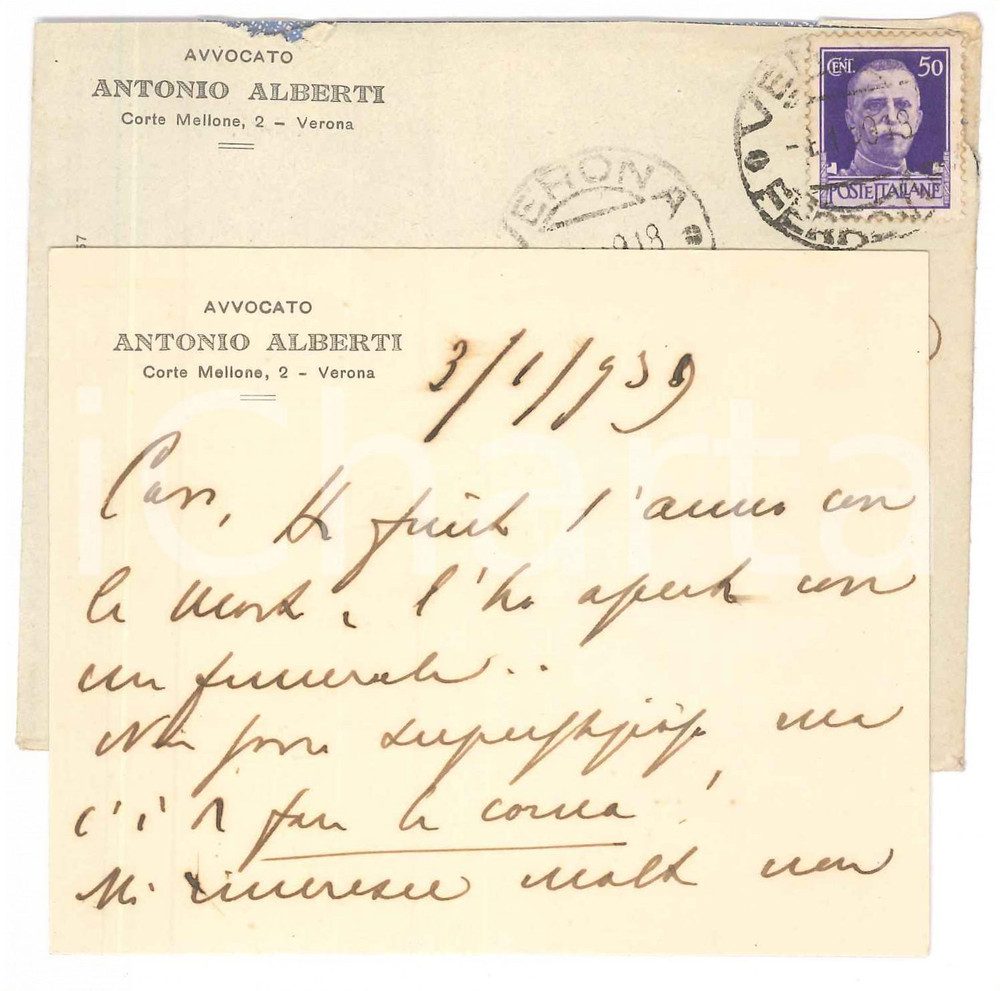 AVVOCATO
ANTONIO ALBERTI
Corte Mellone, 2 - Verona
CENT. 50
POSTE ITALIANE
VERONA
AVVOCATO
ANTONIO ALBERTI
Corte Mellone, 2 - Verona
3/1/939
Caro, Ho finito l'anno con
la morte, l'ho aperto con
un funerale..
Non sono superstizioso ma
c'è da fare le corna!
Mi rincresce molto non
iCharta